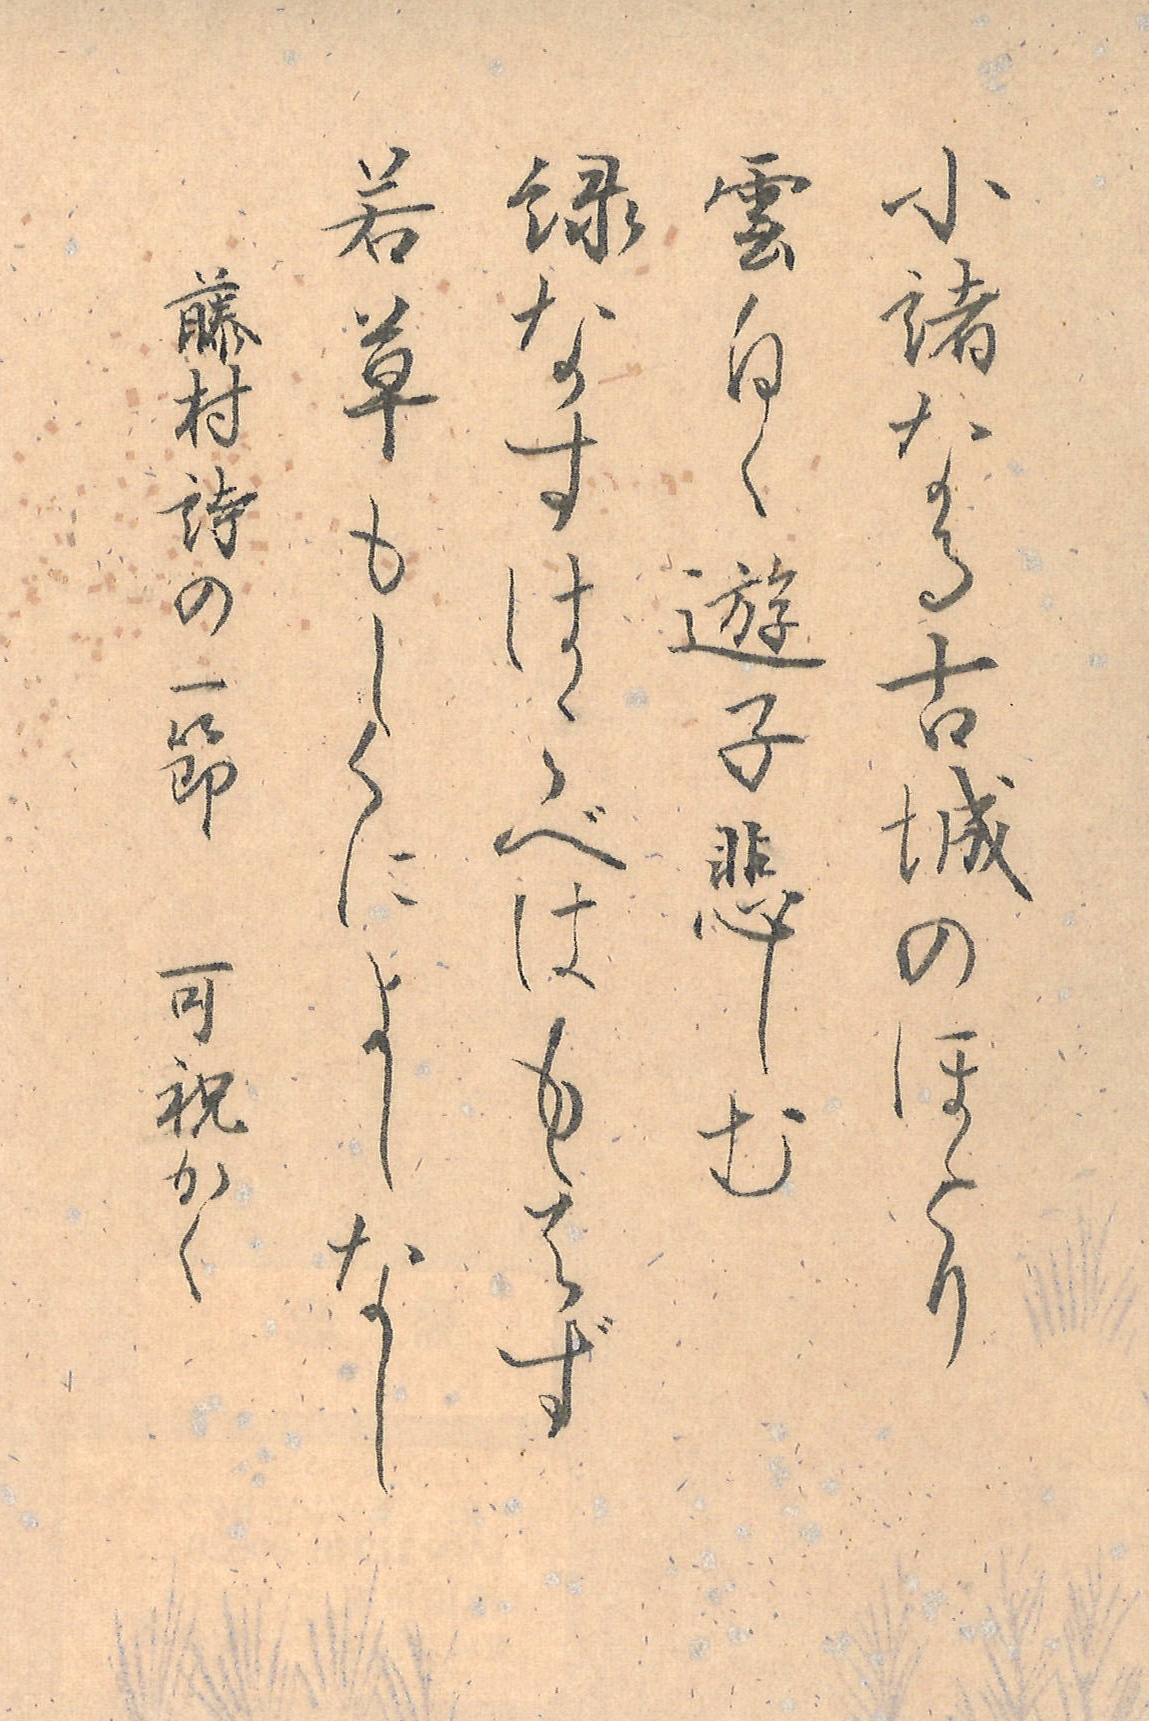 小諸なる古城のほとり
雲白く遊子悲しむ
緑なすはこべはもえず
若草もしくによしなし
藤村詩の一節 可祝かく